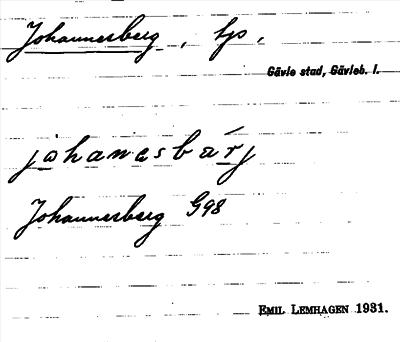 Johannesberg, lp,
Gävle stad, Gävleb. l.
johanasbárj
Johannesberg G98
EMIL LEMHAGEN 1931.